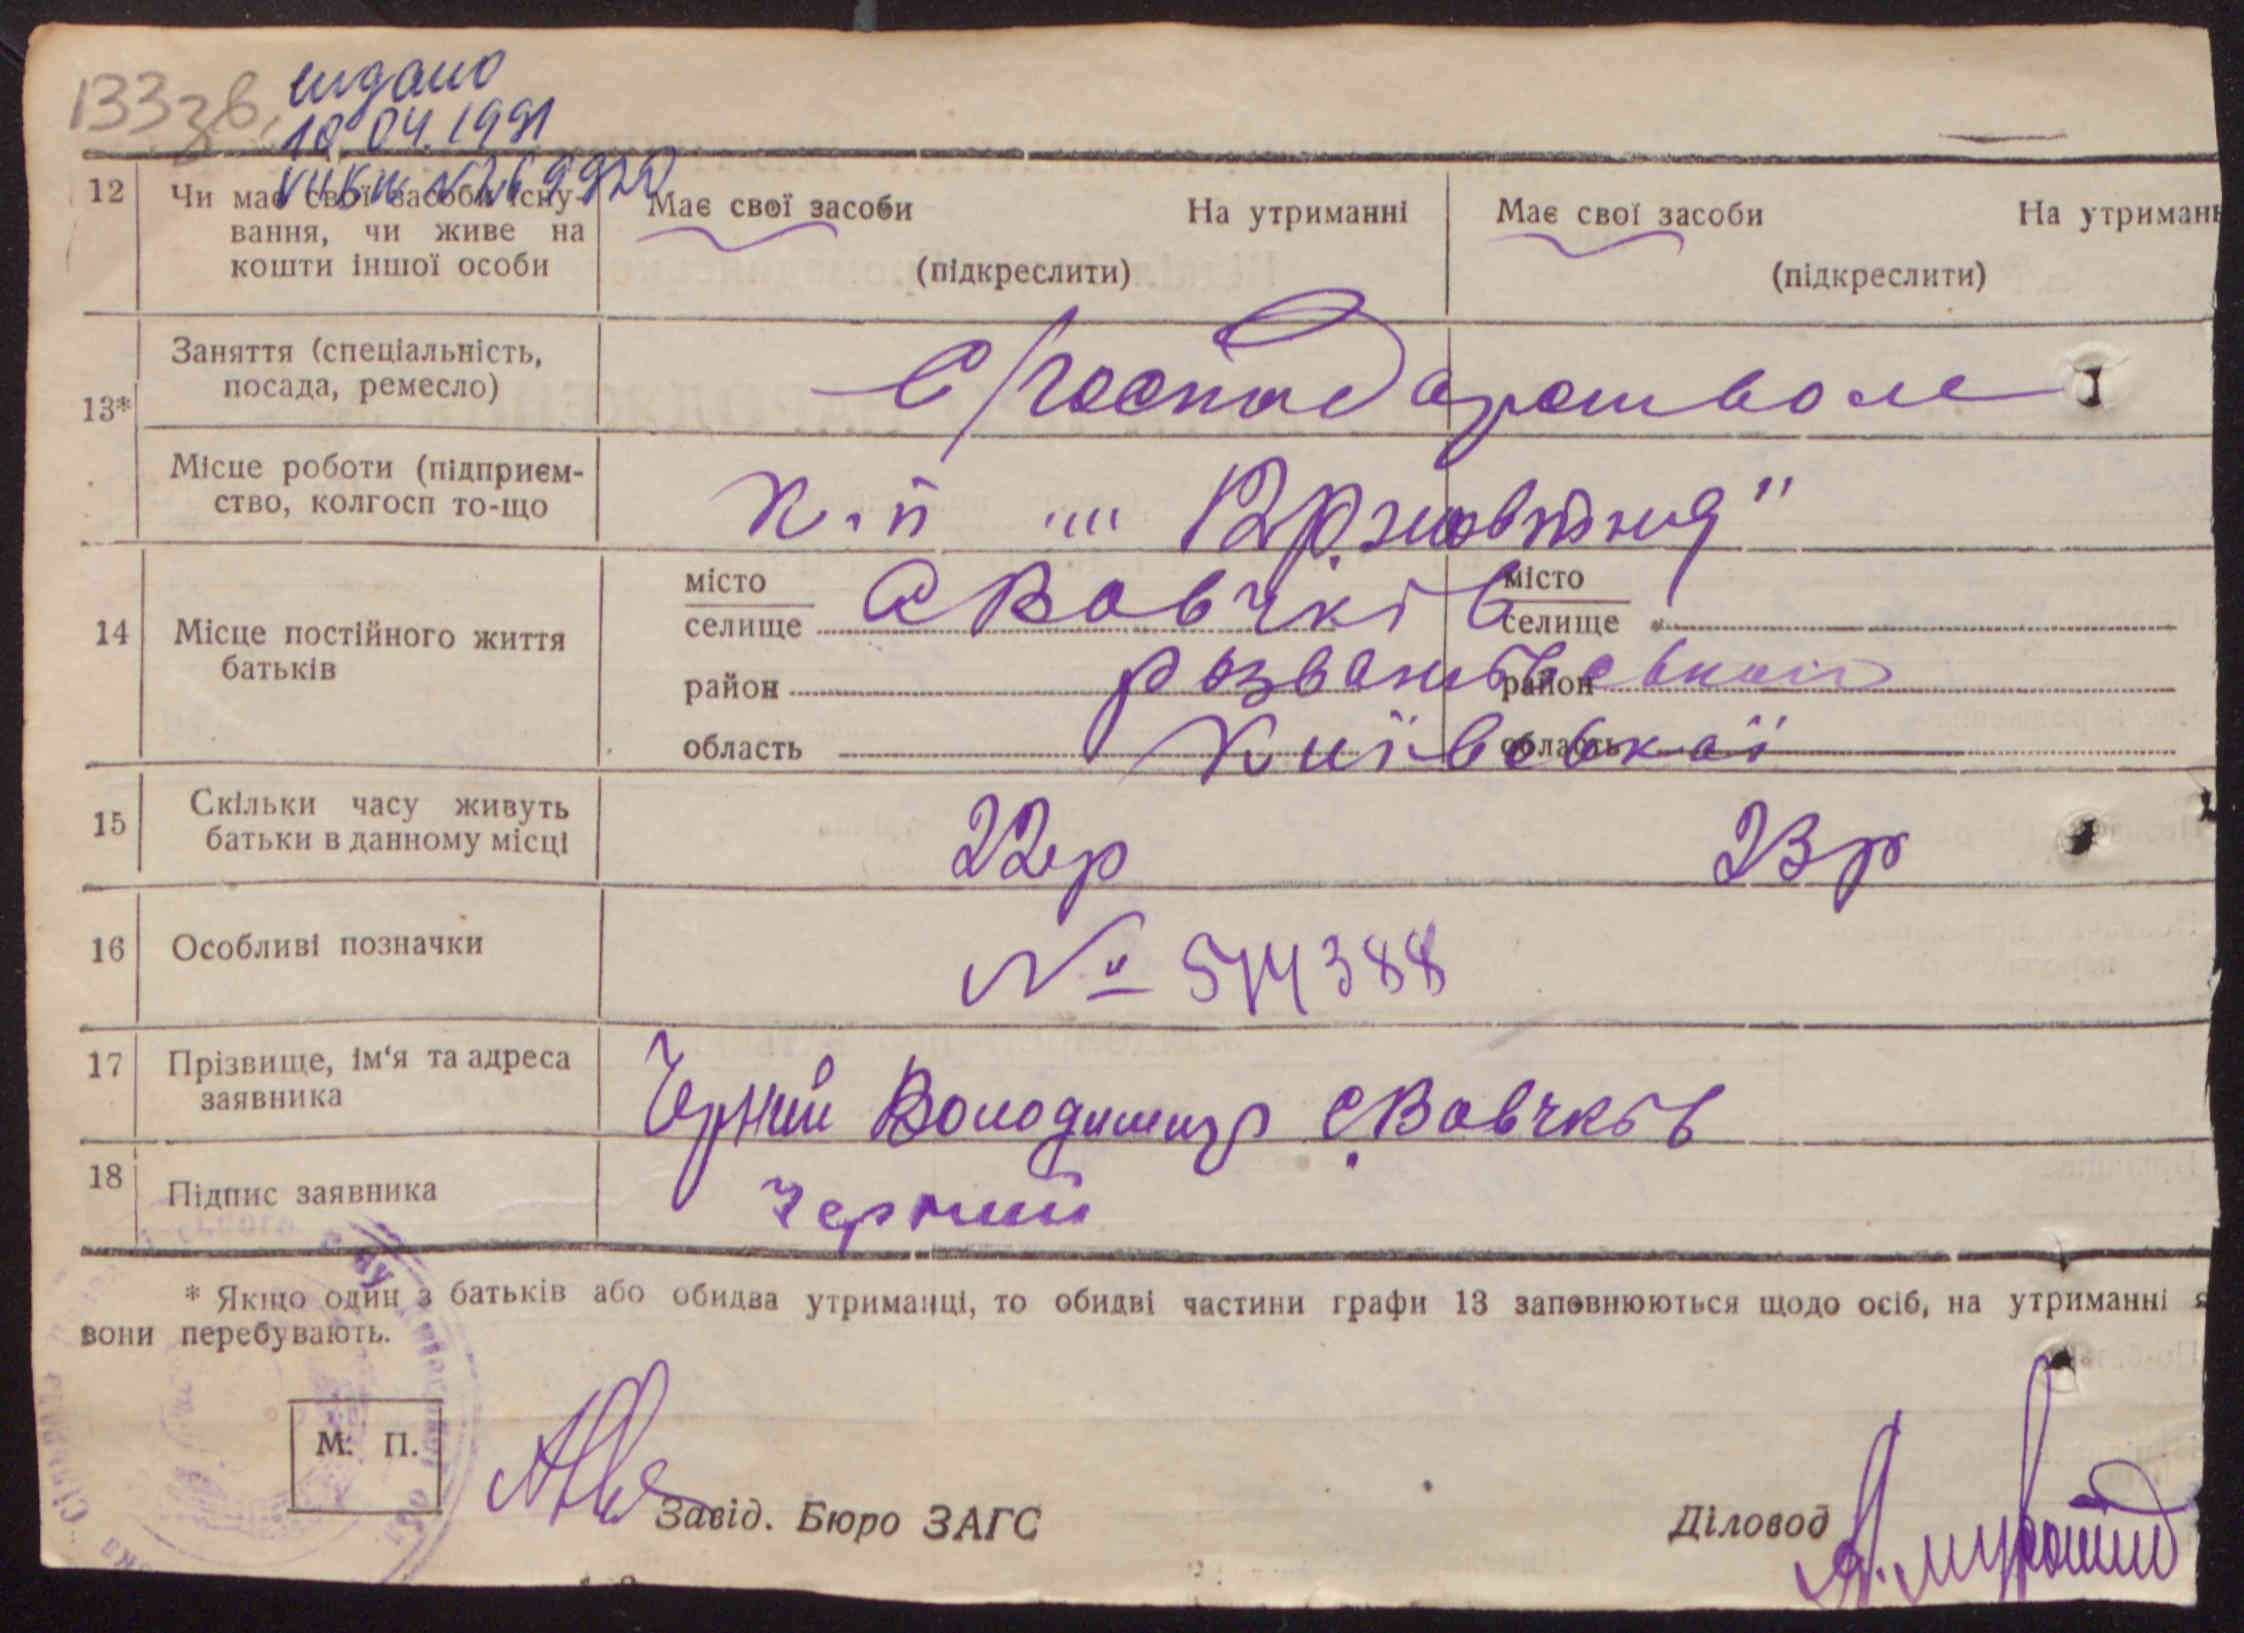 133зв.
видано
10.04.1991
12 Чи має свої засоби існу-
вання, чи живе на
кошти іншої особи
Має свої засоби На утриманні
(підкреслити)
Має свої засоби На утриманн
(підкреслити)
13*
Заняття (спеціальність,
посада, ремесло)
с/господарством
Місце роботи (підприєм-
ство, колгосп то-що
к-п "12 р. жовтня"
14 Місце постійного життя
батьків
місто
селище с Вовчків
район розважевський
область Київської
місто
селище
район
область
15 Скільки часу живуть
батьки в данному місці
22 р 23 р
16 Особливі позначки
№ 574388
17 Прізвище, ім'я та адреса
заявника
Черний Володимир с Вовчків
18 Підпис заявника
Черний
* Якщо один з батьків або обидва утриманці, то обидві частини графи 13 заповнюються щодо осіб, на утриманні я
вони перебувають.
М. П.
Завід. Бюро ЗАГС
Діловод